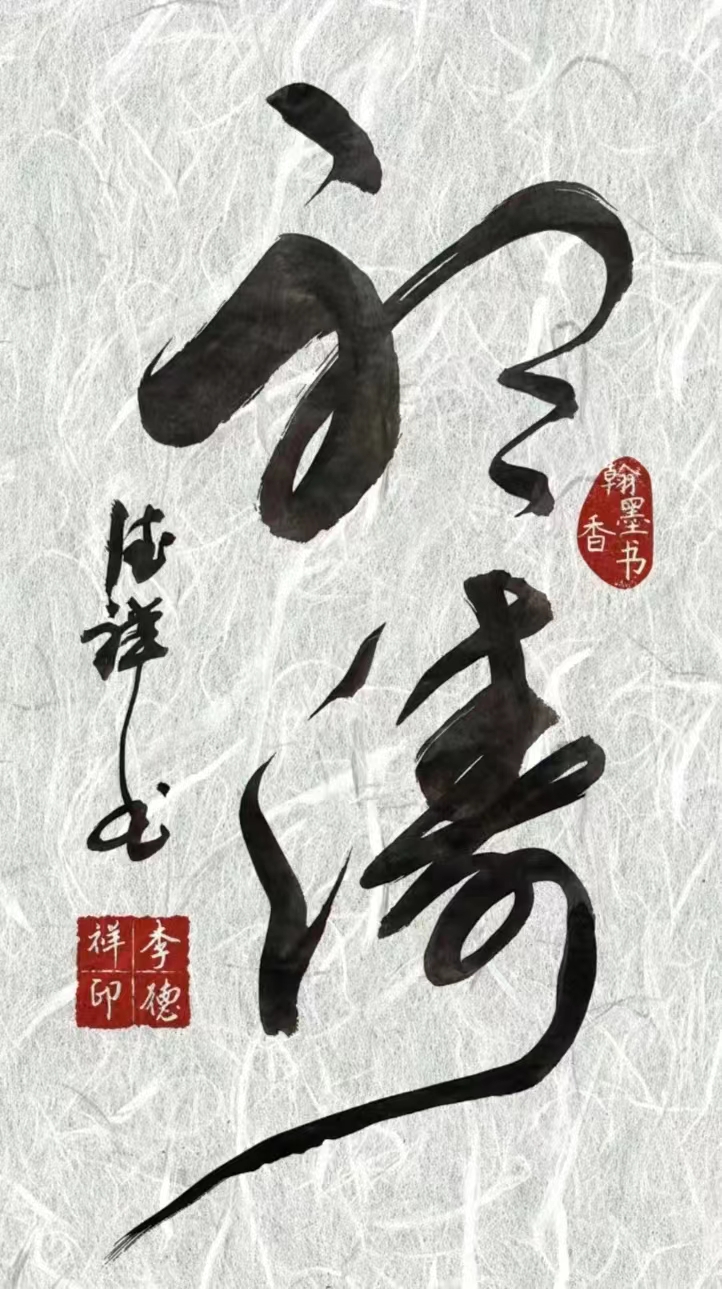 涛
翰墨书香
德祥书
李德祥印